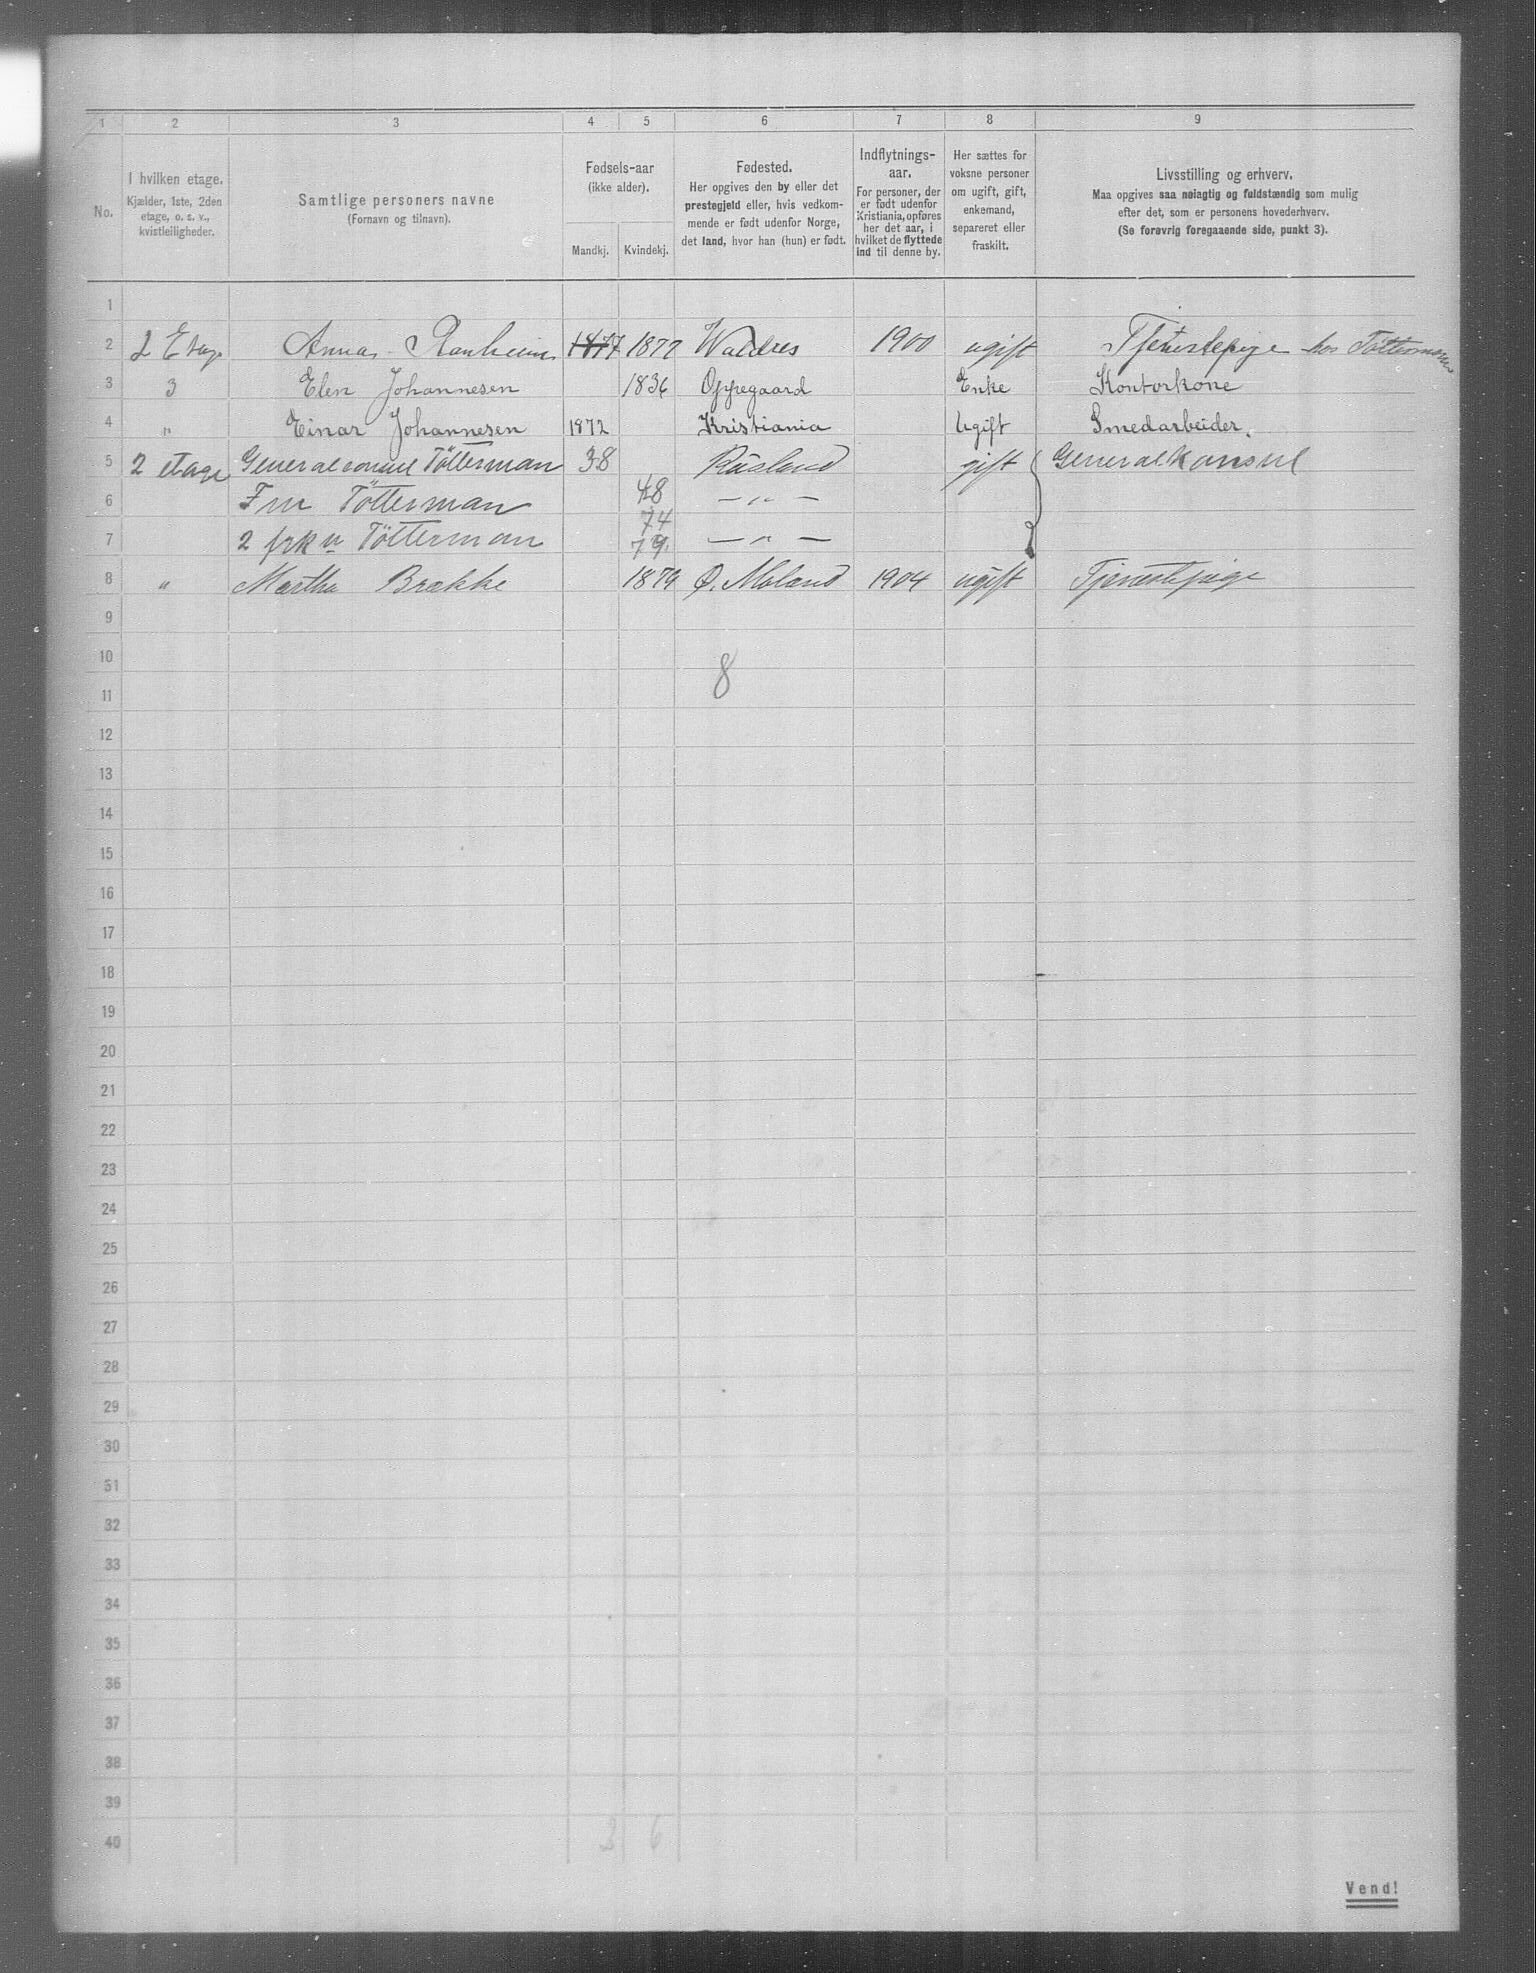 1 2 3 4 5 6 7 8 9
No.
I hvilken etage.
Kjælder, 1ste, 2den
etage, o. s. v.,
kvistleiligheder.
Samtlige personers navne
(Fornavn og tilnavn).
Fødsels-aar
(ikke alder).
Mandkj. Kvindekj.
Fødested.
Her opgives den by eller det
prestegjeld eller, hvis vedkom-
mende er født udenfor Norge,
det land, hvor han (hun) er født.
Indflytnings-
aar.
For personer, der
er født udenfor
Kristiania, opføres
her det aar, i
hvilket de flyttede
ind til denne by.
Her sættes for
voksne personer
om ugift, gift,
enkemand,
separeret eller
fraskilt.
Livsstilling og erhverv.
Maa opgives saa nøiagtig og fuldstændig som mulig
efter det, som er personens hovederhverv.
(Se forøvrig foregaaende side, punkt 3).
1
2 2 Etage Anna Ranheim 1877 1877 Waldres 1900 ugift Tjenestepige hos Tötterman
3 3 Elen Johannesen 1836 Oppegaard Enke Kontorkone
4 " Einar Johannesen 1872 Kristiania Ugift Smedarbeider.
5 2 etage Generalconsul Tötterman 38 Rusland gift Generalkonsul
6 Fru Tötterman 48 — " —
7 2 frkn Tötterman 74 79. — " —
8 " Martha Brække 1879 Ø. Moland 1904 ugift Tjenestepige
9
10
8
11
12
13
14
15
16
17
18
19
20
21
22
23
24
25
26
27
28
29
30
31
32
33
34
35
36
37
38
39
40 2 6
Vend!